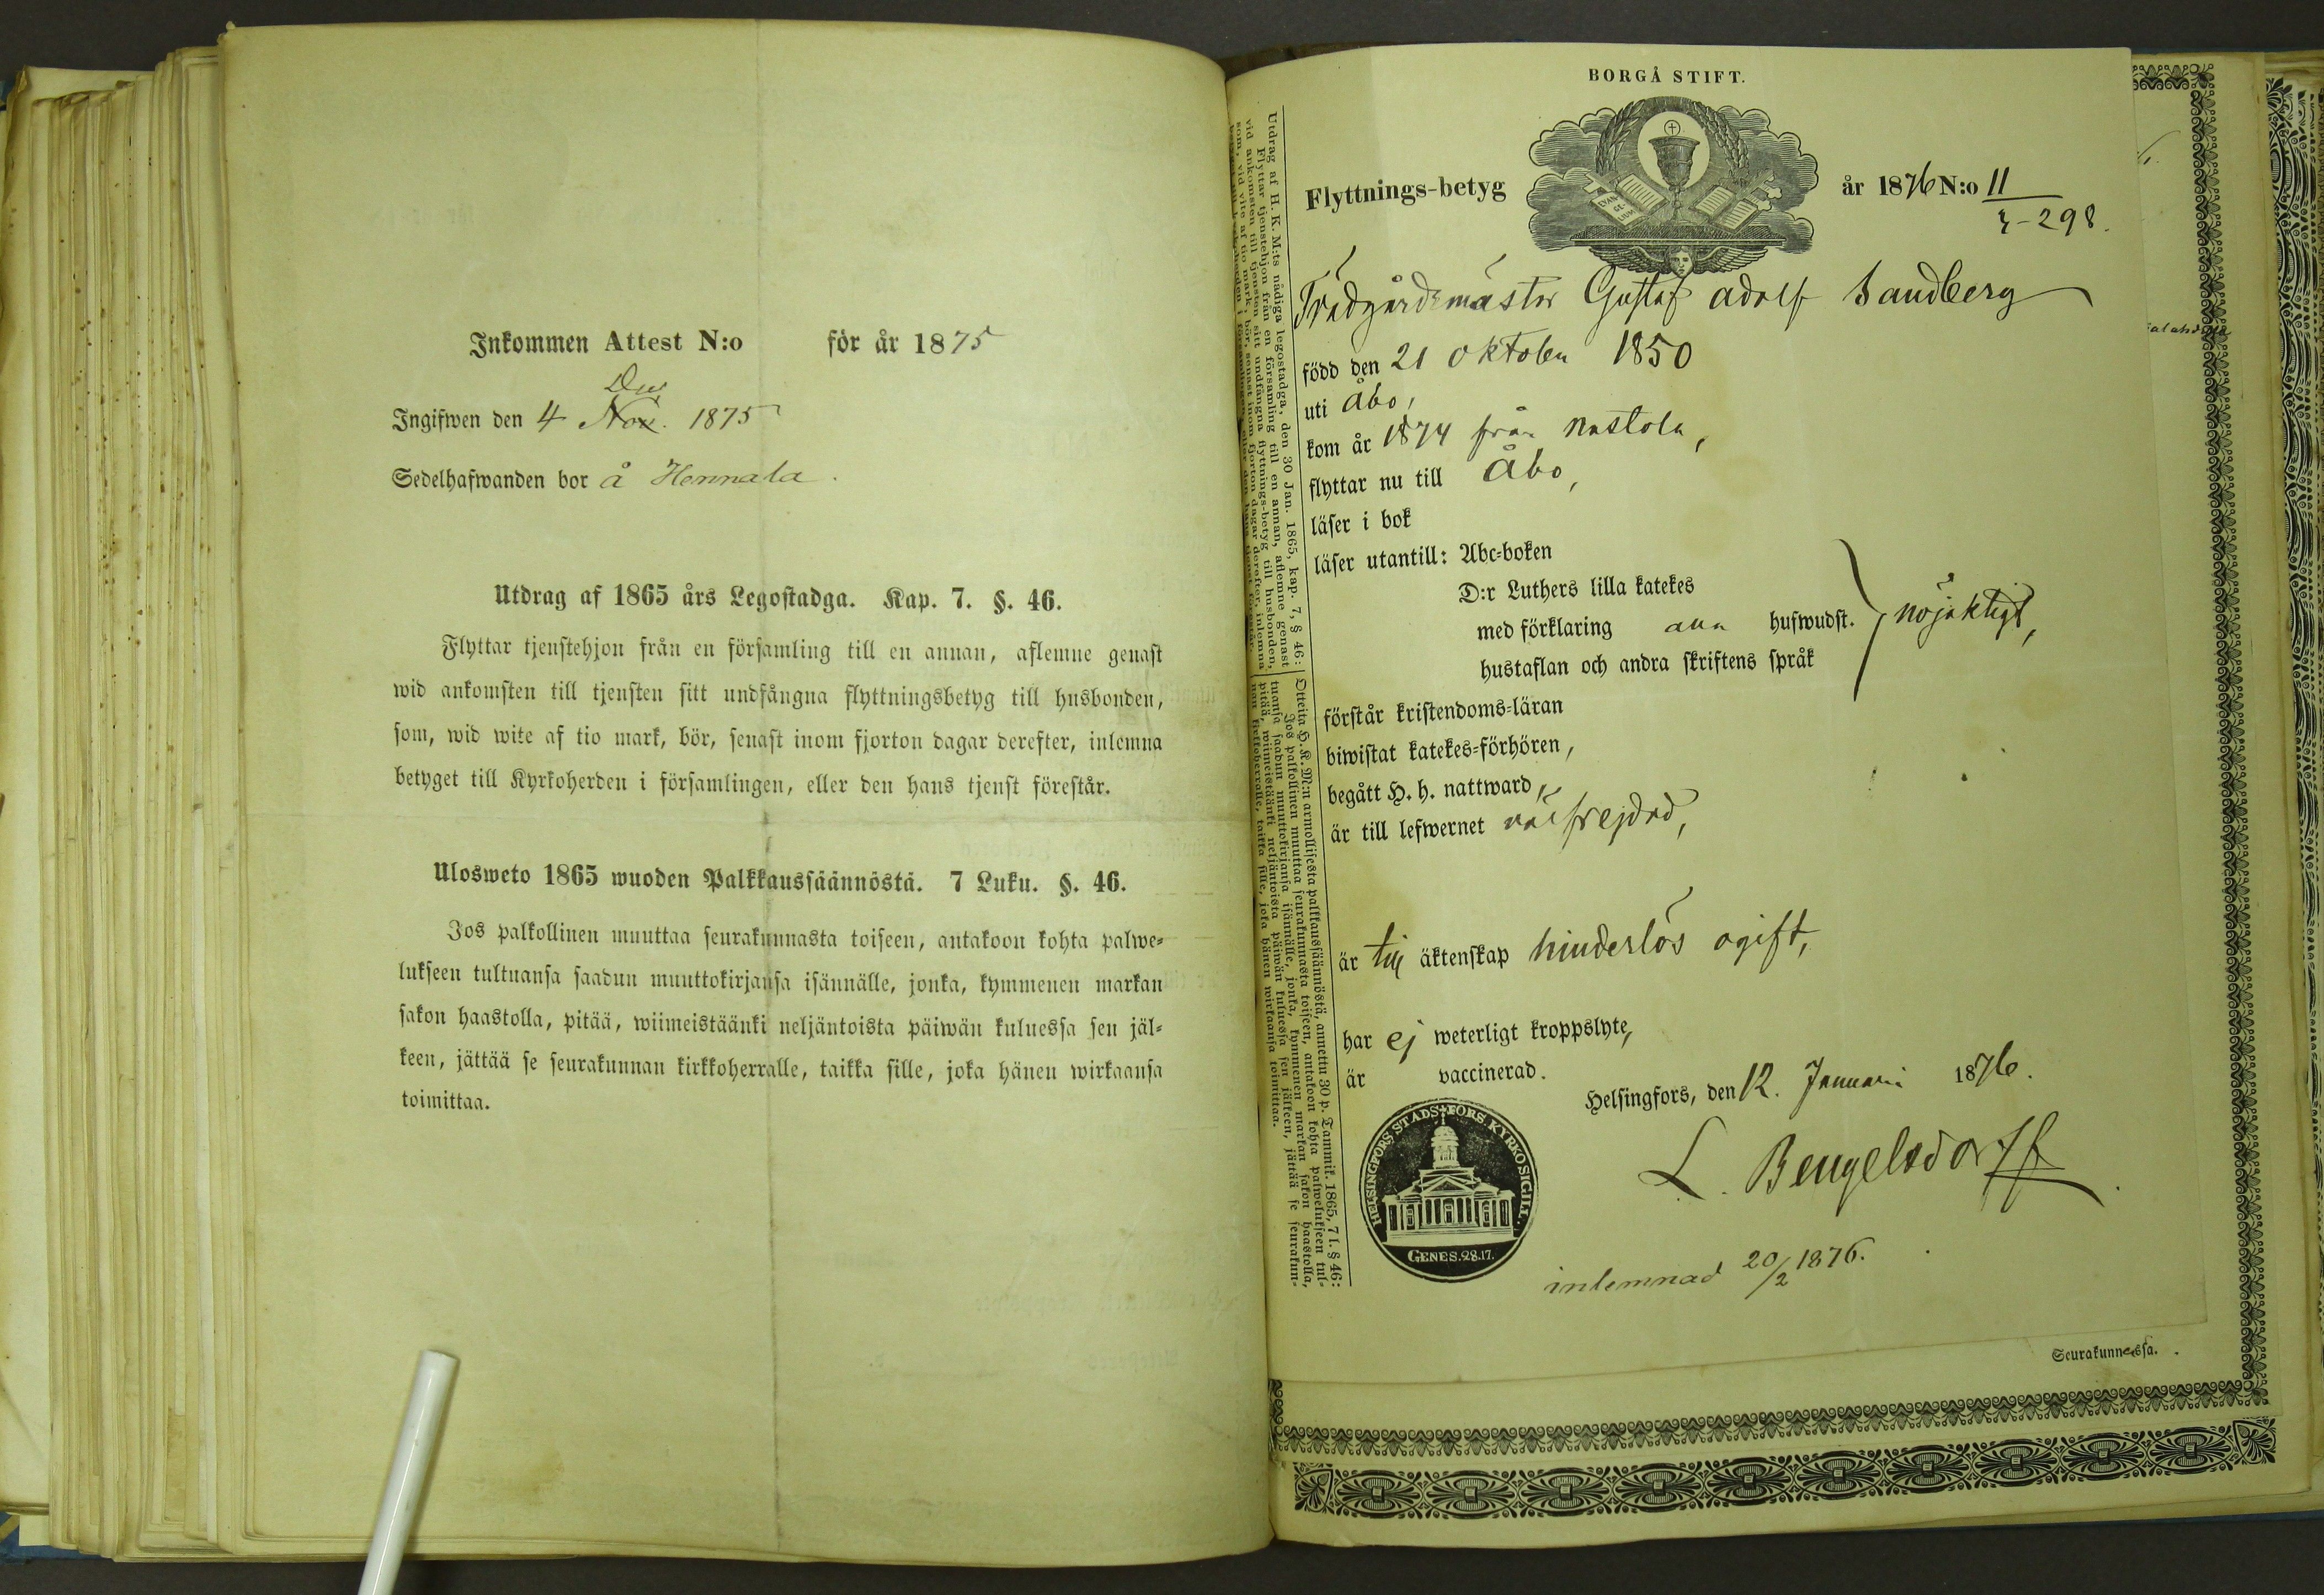 Inkommen Attest N:o för år 1875
Dec
Ingifwen den 4 Nov. 1875
Sedelhafwanden bor å Hennala.
Utdrag af 1865 års Legostadga. Kap. 7. §. 46.
Flyttar tjenstehjon från en församling till en annan, aflemne genast
wid ankomsten till tjensten sitt undfångna flyttningsbetyg till husbonden,
som, wid wite af tio mark, bör, senast inom fjorton dagar derefter, inlemna
betyget till Kyrkoherden i församlingen, eller den hans tjenst förestår.
Ulosweto 1865 wuoden Palkkaussäännöstä. 7 Luku. §. 46.
Jos palkollinen muuttaa seurakunnasta toiseen, antakoon kohta palwe-
lukseen tultuansa saadun muuttokirjansa isännälle, jonka, kymmenen markan
sakon haastolla, pitää, wiimeistäänki neljäntoista päiwän kuluessa sen jäl-
keen, jättää se seurakunnan kirkkoherralle, taikka sille, joka hänen wirkaansa
toimittaa.
BORGÅ STIFT.
EVAN-
GE-
LIUM
Flyttnings-betyg år 1876 N:o 11
r-298.
Trädgårdsmästar Gustaf Adolf Sandberg
född den 21 Oktober 1850
uti Åbo,
kom år 1874 från Nastola,
flyttar nu till Åbo,
läser i bok
läser utantill: Abc-boken
D:r Luthers lilla katekes
med förklaring alla hufwudst. nöjaktigt,
hustaflan och andra skriftens språk
förstår kristendoms-läran
biwistat katekes-förhören,
begått H. h. nattward,
är till lefwernet välfrejdad,
är till äktenskap hinderlös ogift,
har ej weterligt kroppslyte,
är vaccinerad.
Helsingfors, den 12. Januari 1876.
L. Bengelsdorff
HELSINGFORS STADS FÖRS. KYRKOSIGILL.
GENES. 28.17.
inlemnad 20/2 1876.
Seurakunnassa.
Utdrag af H. K. M:ts nådiga legostadga, den 30 Jan. 1865, kap. 7, § 46:
Flyttar tjenstehjon från en församling till en annan, aflemne genast
vid ankomsten till tjensten sitt undfångna flyttnings-betyg till husbonden,
som, vid vite af tio mark, bör, senast inom fjorton dagar derefter, inlemna
Otteita H. K. M:n armollisesta palkkaussäännöstä, annettu 30 p. Tammik. 1865, 7 l. § 46:
Jos palkollinen muuttaa seurakunnasta toiseen, antakoon kohta palwelukseen tul-
tuansa saadun muuttokirjansa isännälle, jonka, kymmenen markan sakon haastolla,
pitää, wiimeistäänki neljäntoista päiwän kuluessa sen jälkeen, jättää se seurakun-
nan kirkkoherralle, taikka sille, joka hänen wirkaansa toimittaa.